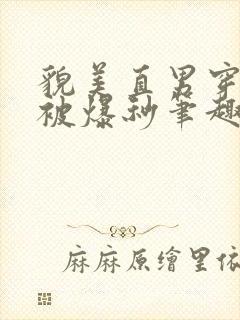 貌美直男穿
被爆秒笔趣
麻麻原繪里依